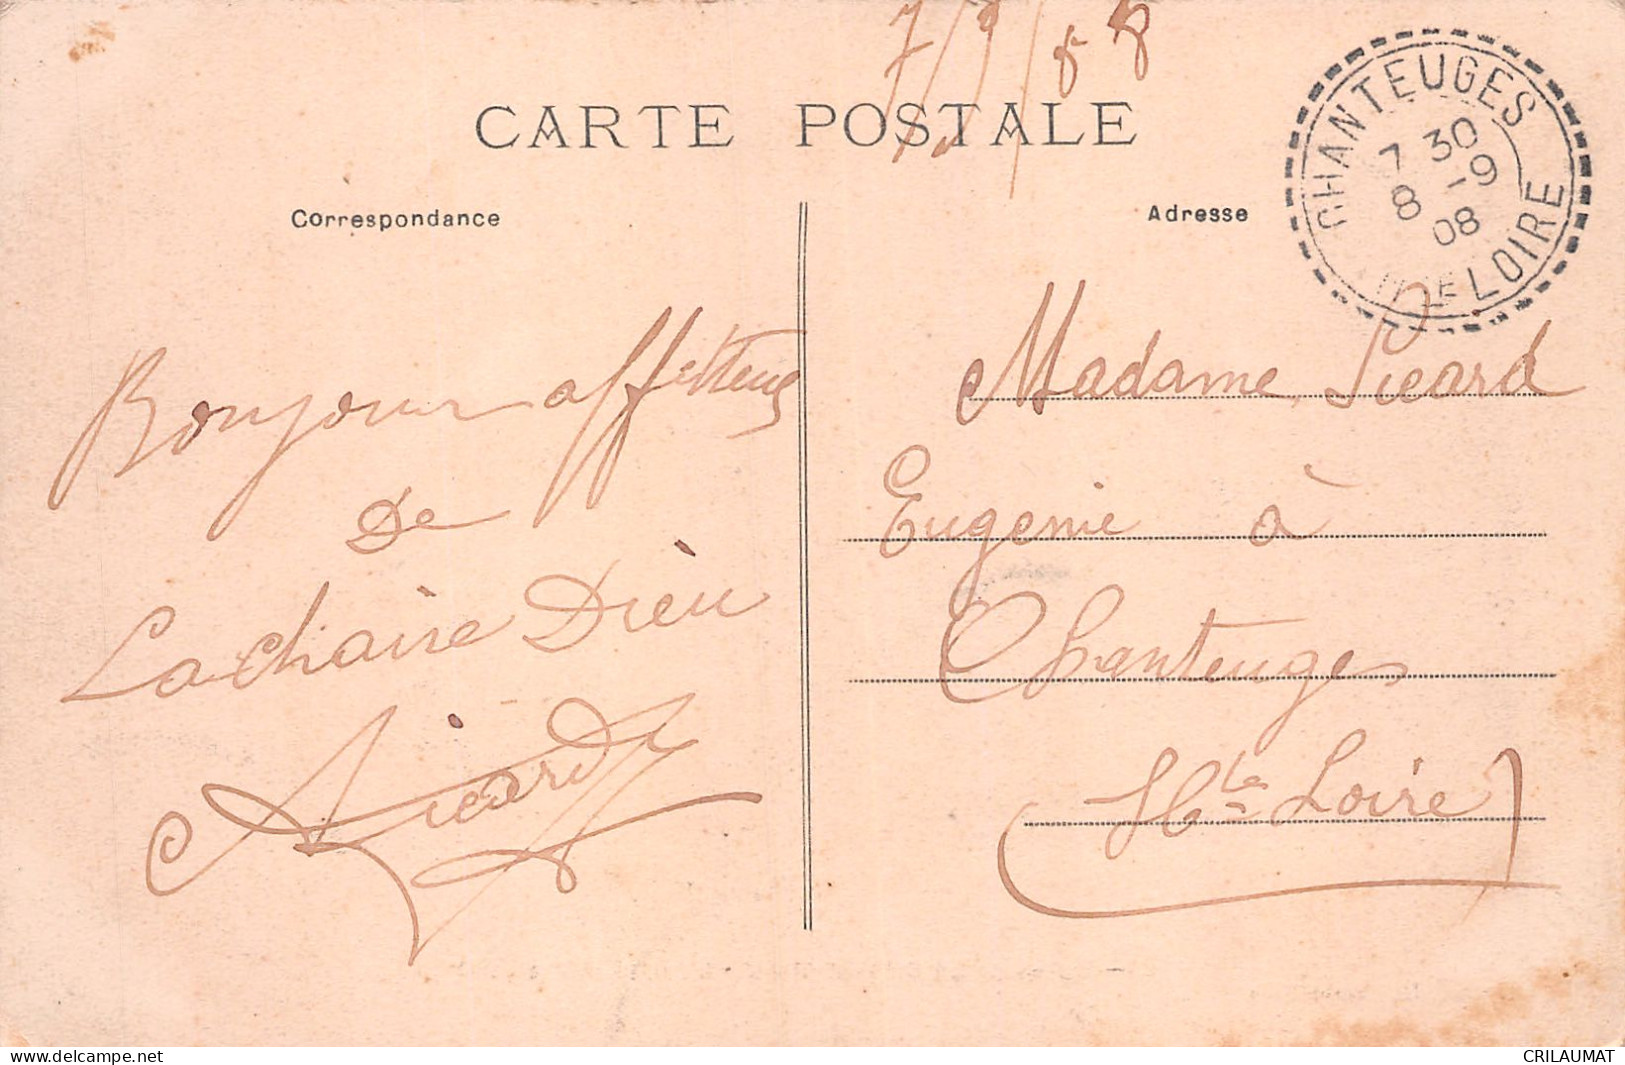 7/9/08
CARTE POSTALE
CHANTEUGES
7 30
8 -9
08
Hte LOIRE
Correspondance
Adresse
Bonjour affectueux
De
La chaire Dieu
Picard
Madame Picard
Eugenie à
Chanteuges
(Hte Loire)
www.delcampe.net
CRILAUMAT